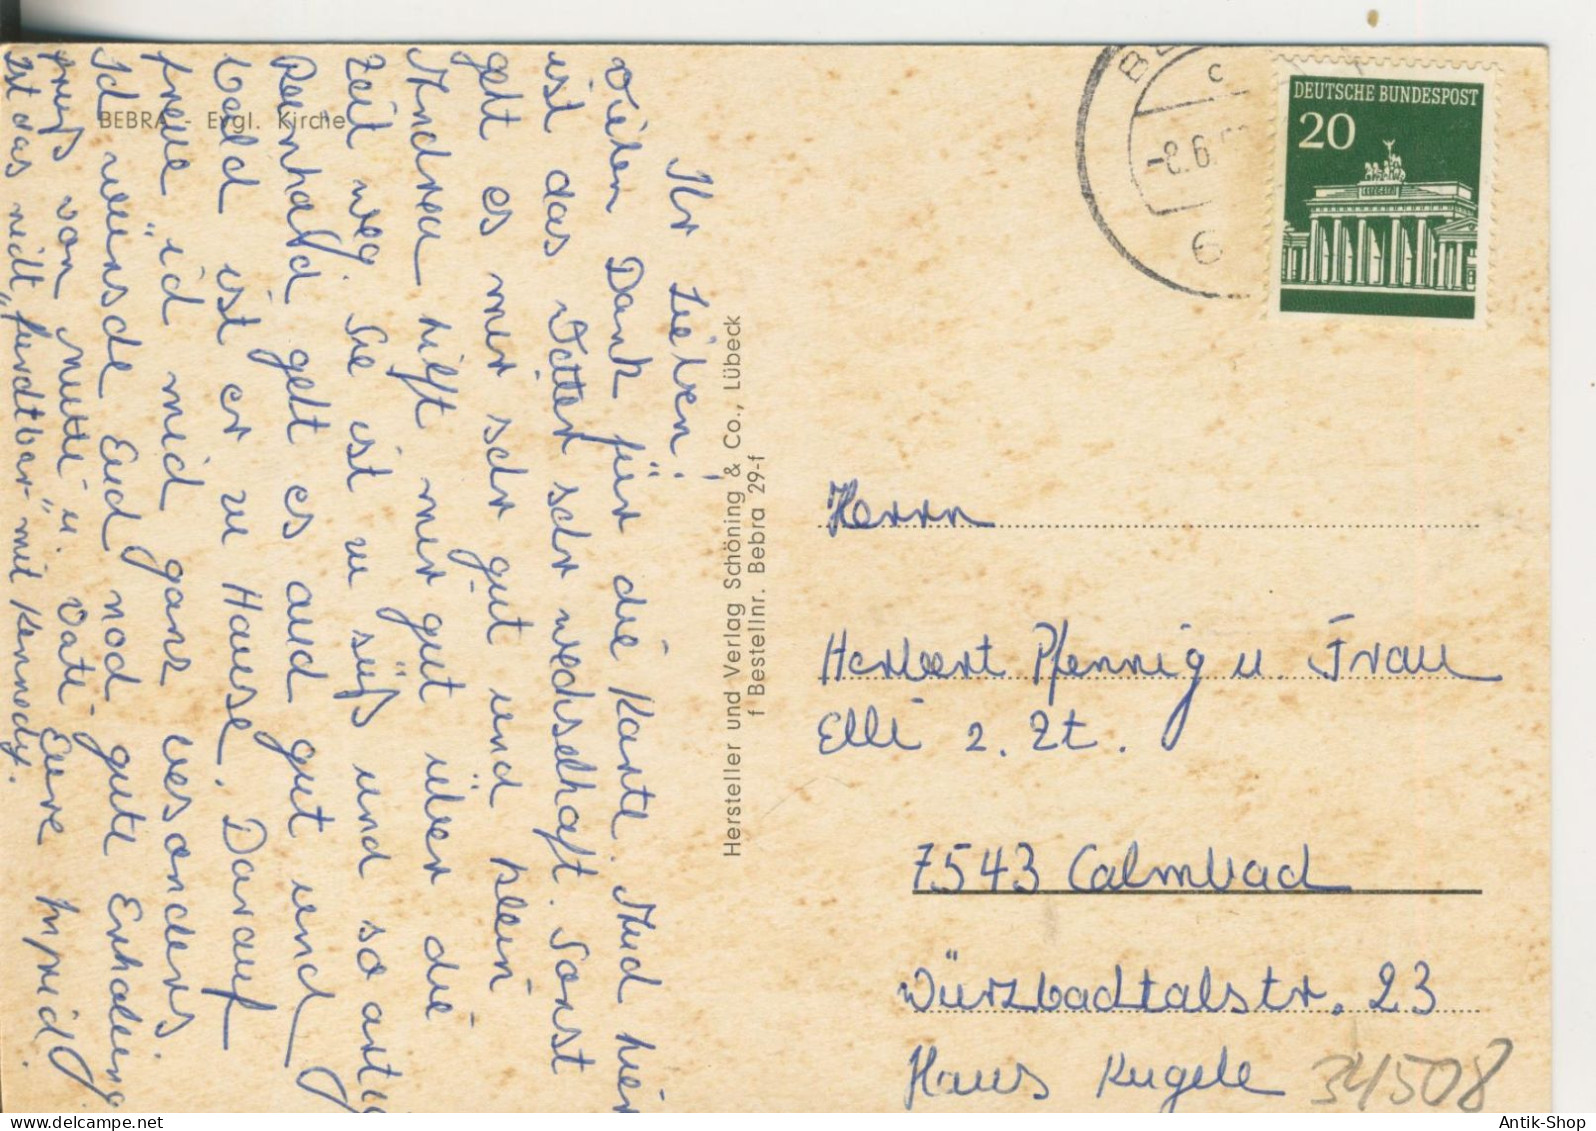 BEBRA - Evgl. Kirche
Ihr Lieben!
Vielen Dank für die Karte. Auch hier
ist das Wetter sehr wechselhaft. Sonst
geht es mir sehr gut und klein
Andrea hilft mir gut über die
Zeit weg. Sie ist zu süß und so artig
Reinhard geht es auch gut und
bald ist er zu Hause. Darauf
freue "ich mich ganz besonders.
Ich wünsche Euch noch gute Erholung
Gruß von Mutti u. Vati. Eure Ingrid.
Ist das nicht „furchtbar" mit Kennedy.
Hersteller und Verlag Schöning & Co., Lübeck
f Bestellnr. Bebra 29-f
C
-8.6.
6
DEUTSCHE BUNDESPOST
20
Herrn
Herbert Pfennig u. Frau
Elli z. Zt.
7543 Calmbach
Würzbachtalstr. 23
Haus Kugele
34508
Antik-Shop